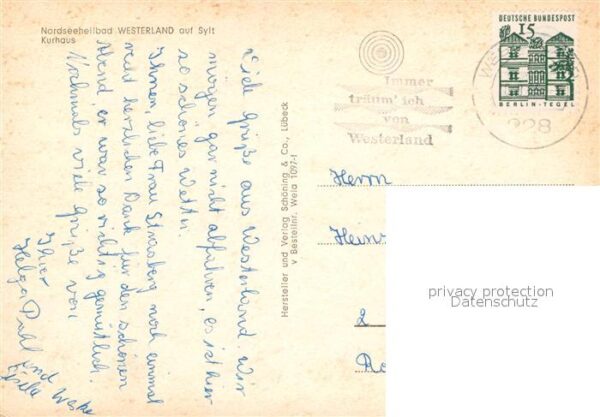 Nordseeheilbad WESTERLAND auf Sylt
Kurhaus
Viele Grüße aus Westerland. Wir
mögen gar nicht abfahren, es ist hier
so schönes Wetter.
Ihnen, liebe Frau Strasberg noch einmal
recht herzlichen Dank für den schönen
Abend, er war so richtig gemütlich.
Nochmals viele Grüße von
Ihrer
Helga
und
Hersteller und Verlag Schöning & Co., Lübeck
v Bestellnr. Wela 1097-1
DEUTSCHE BUNDESPOST
15
BERLIN-TEGEL
Immer
träum' ich
von
Westerland
Herrn
privacy protection
Datenschutz